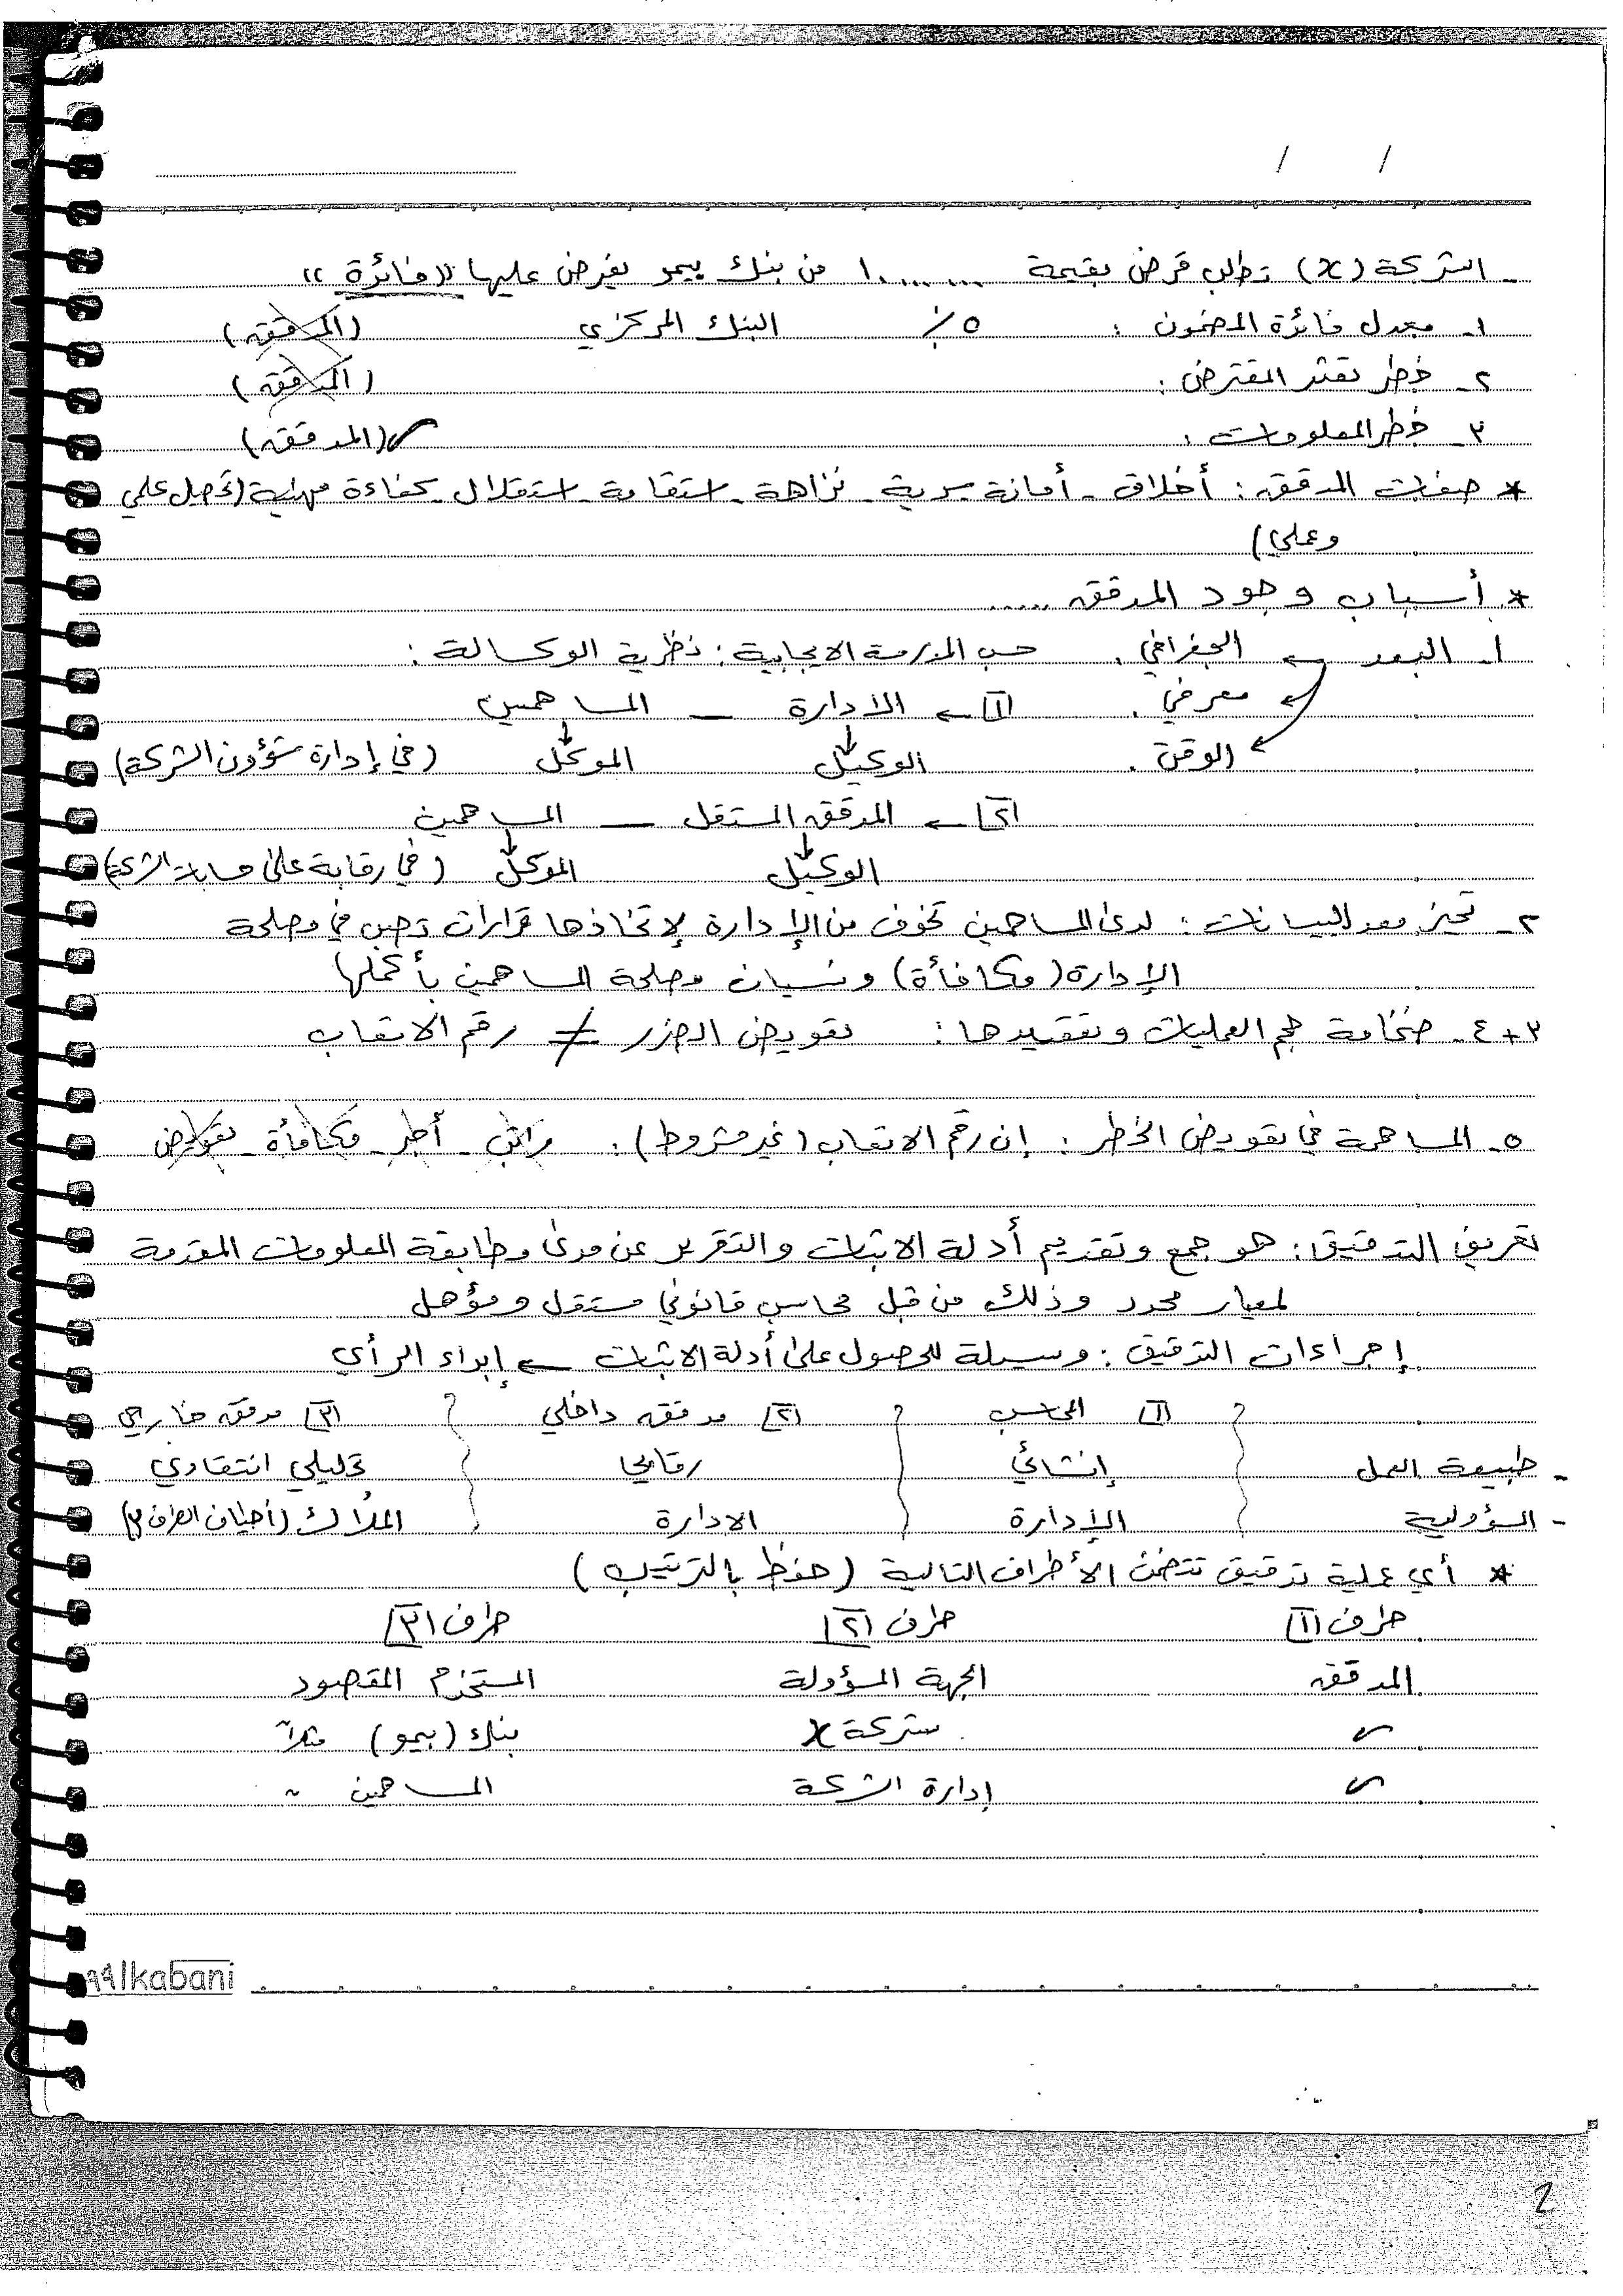 / /
- الشركة (x) تطلب قرض بقيمة ١٠٠٠٠٠٠ من بنك بيمو يفرض عليها «فائدة»
١- معدل فائدة المضمون : ٥٪ البنك المركزي (المدققة)
٢- خطر تعثر المقترض : (المدققة)
٣- خطر المعلومات : ✓(المدققة)
* صفات المدقق : أخلاق - أمانة - سرية - نزاهة - استقامة - استقلال - كفاءة مهنية (تأصيل علمي
وعملي)
* أسباب وجود المدقق .....
١- البعد ← الجغرافي . حسب المدرسة الايجابية : نظرية الوكالة :
← معرفي . ١ ← الادارة — المساهمين
← الوقت . الوكيل الموكّل (في إدارة شؤون الشركة)
٢ ← المدقق المستقل — المساهمين
الوكيل الموكّل (في رقابة على حسابات الشركة)
٢- تحيز معد البيانات : لدى المساهمين تخوف من الإدارة لإتخاذها قرارات تصب في مصلحة
الإدارة (مكافأة) ونسيان مصلحة المساهمين بأكملها
٣+٤- ضخامة حجم العمليات وتعقيدها : تعويض الضرر ≠ رقم الاتعاب
٥- المساهمة في تعويض الخطر : إن رقم الاتعاب (غير مشروط) : راتب - أجر - مكافأة - تعويض
تعريف التدقيق : هو جمع وتقديم أدلة الاثبات والتقرير عن مدى مطابقة المعلومات المقدمة
لمعيار محدد وذلك من قبل محاسب قانوني مستقل ومؤهل
إجراءات التدقيق : وسيلة للحصول على أدلة الاثبات ← إبداء الرأي
١ المحاسب ٢ مدقق داخلي ٣ مدقق خارجي
- طبيعة العمل إنشائي رقابي تحليلي انتقادي
- المسؤولية الإدارة الادارة الملّاك (أحيان الطرف ٣)
* أي عملية تدقيق تتضمن الأطراف التالية (حفظ بالترتيب)
طرف ١ طرف ٢ طرف ٣
المدقق الجهة المسؤولة المستخدم المقصود
~ شركة X بنك (بيمو) مثلاً
~ إدارة الشركة المساهمين "
Alkabani
2